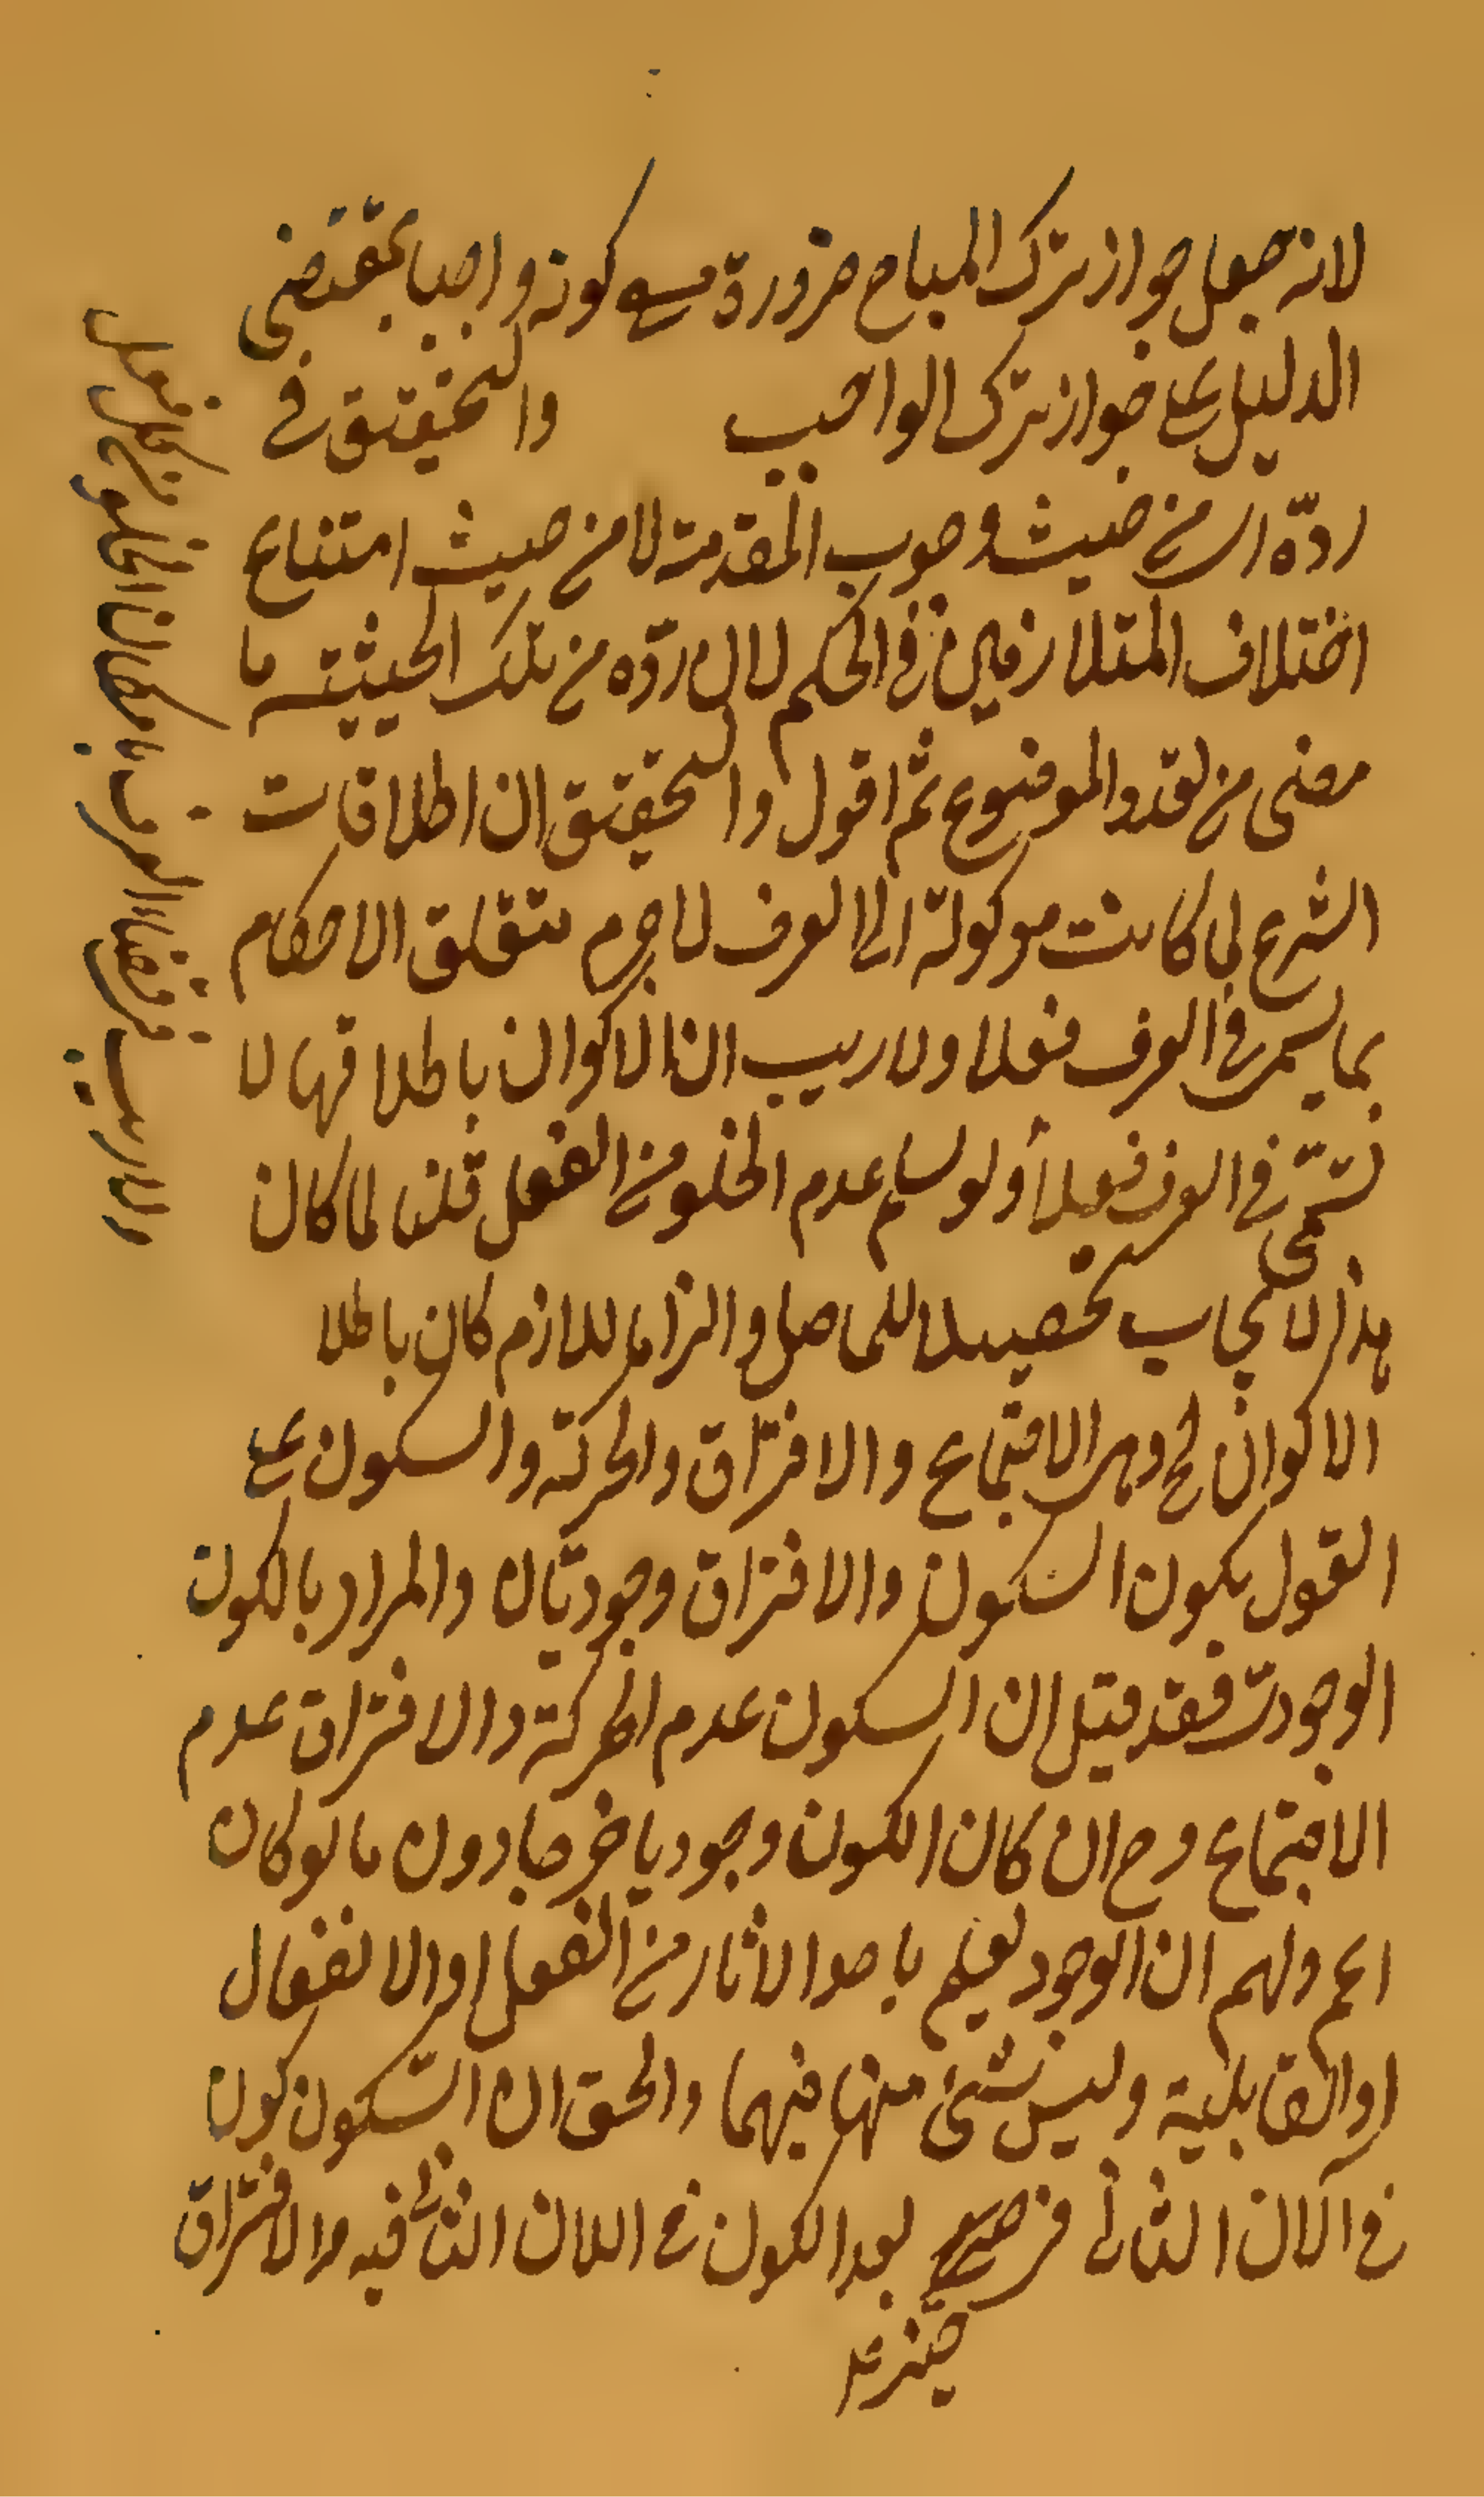 لانه جعل جواز ترك المباح ضرورة مع كونه واجبا بمقتضى
الدليل على جواز ترك الواجب والتحقيق في
ردّه ان من حيث وجوب المقدمة لا من حيث امتناع
اختلاف المتلازمين في الحكم لان ردّه من تلك الحيثية ما
مضى من تعدد الموضوع ثم اقول والتحقيق ان اطلاقات
الشرع لما كانت موكولة الى العرف لا جرم متعلق الاحكام
بما يسمى في العرف فعلا ولا ريب ان الاكوان باطلاقها لا
تسمى في العرف فعلاً ولو سلم عدم الخلو من الفعل قلنا لما كان
هذا الايجاب تحصيلا للحاصل والزاما للازم كان باطلا
الاكوان ح وهي الاجتماع والافتراق والحركة والسكون على
القول بكون السكون والافتراق وجوديان والمراد بالكون
الوجود فقد قيل ان السكون عدم الحركة والافتراق عدم
الاجتماع وح ان كان الكون وجوديا خرجا دون ما لو كان
اعم ولهم ان الوجود يعلم باحد الاثار من الفعل او الانفعال
او القابلية وليس شيئ منها فيهما والحق ان السكون كون
في الآن الثاني في حيز بعد الكون في الان الثاني فيه والافتراق